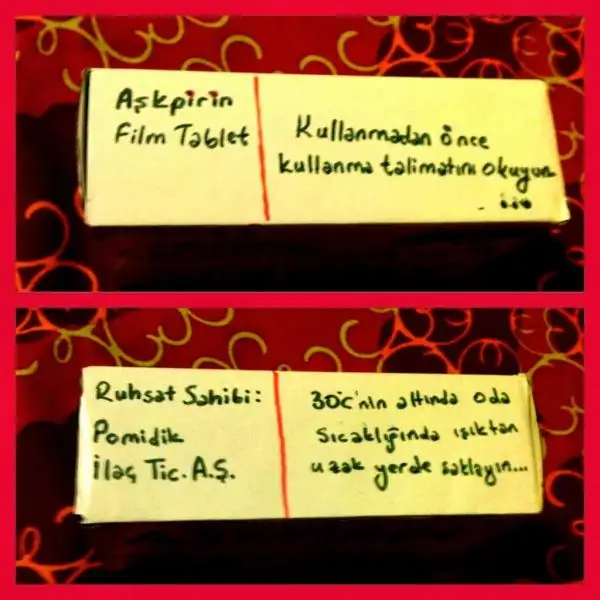 Aşkpirin
Film Tablet
Kullanmadan önce
kullanma talimatını okuyun
Ruhsat Sahibi:
Pomidik
İlaç Tic. A.Ş.
30°C'nin altında oda
Sıcaklığında ışıktan
uzak yerde saklayın...